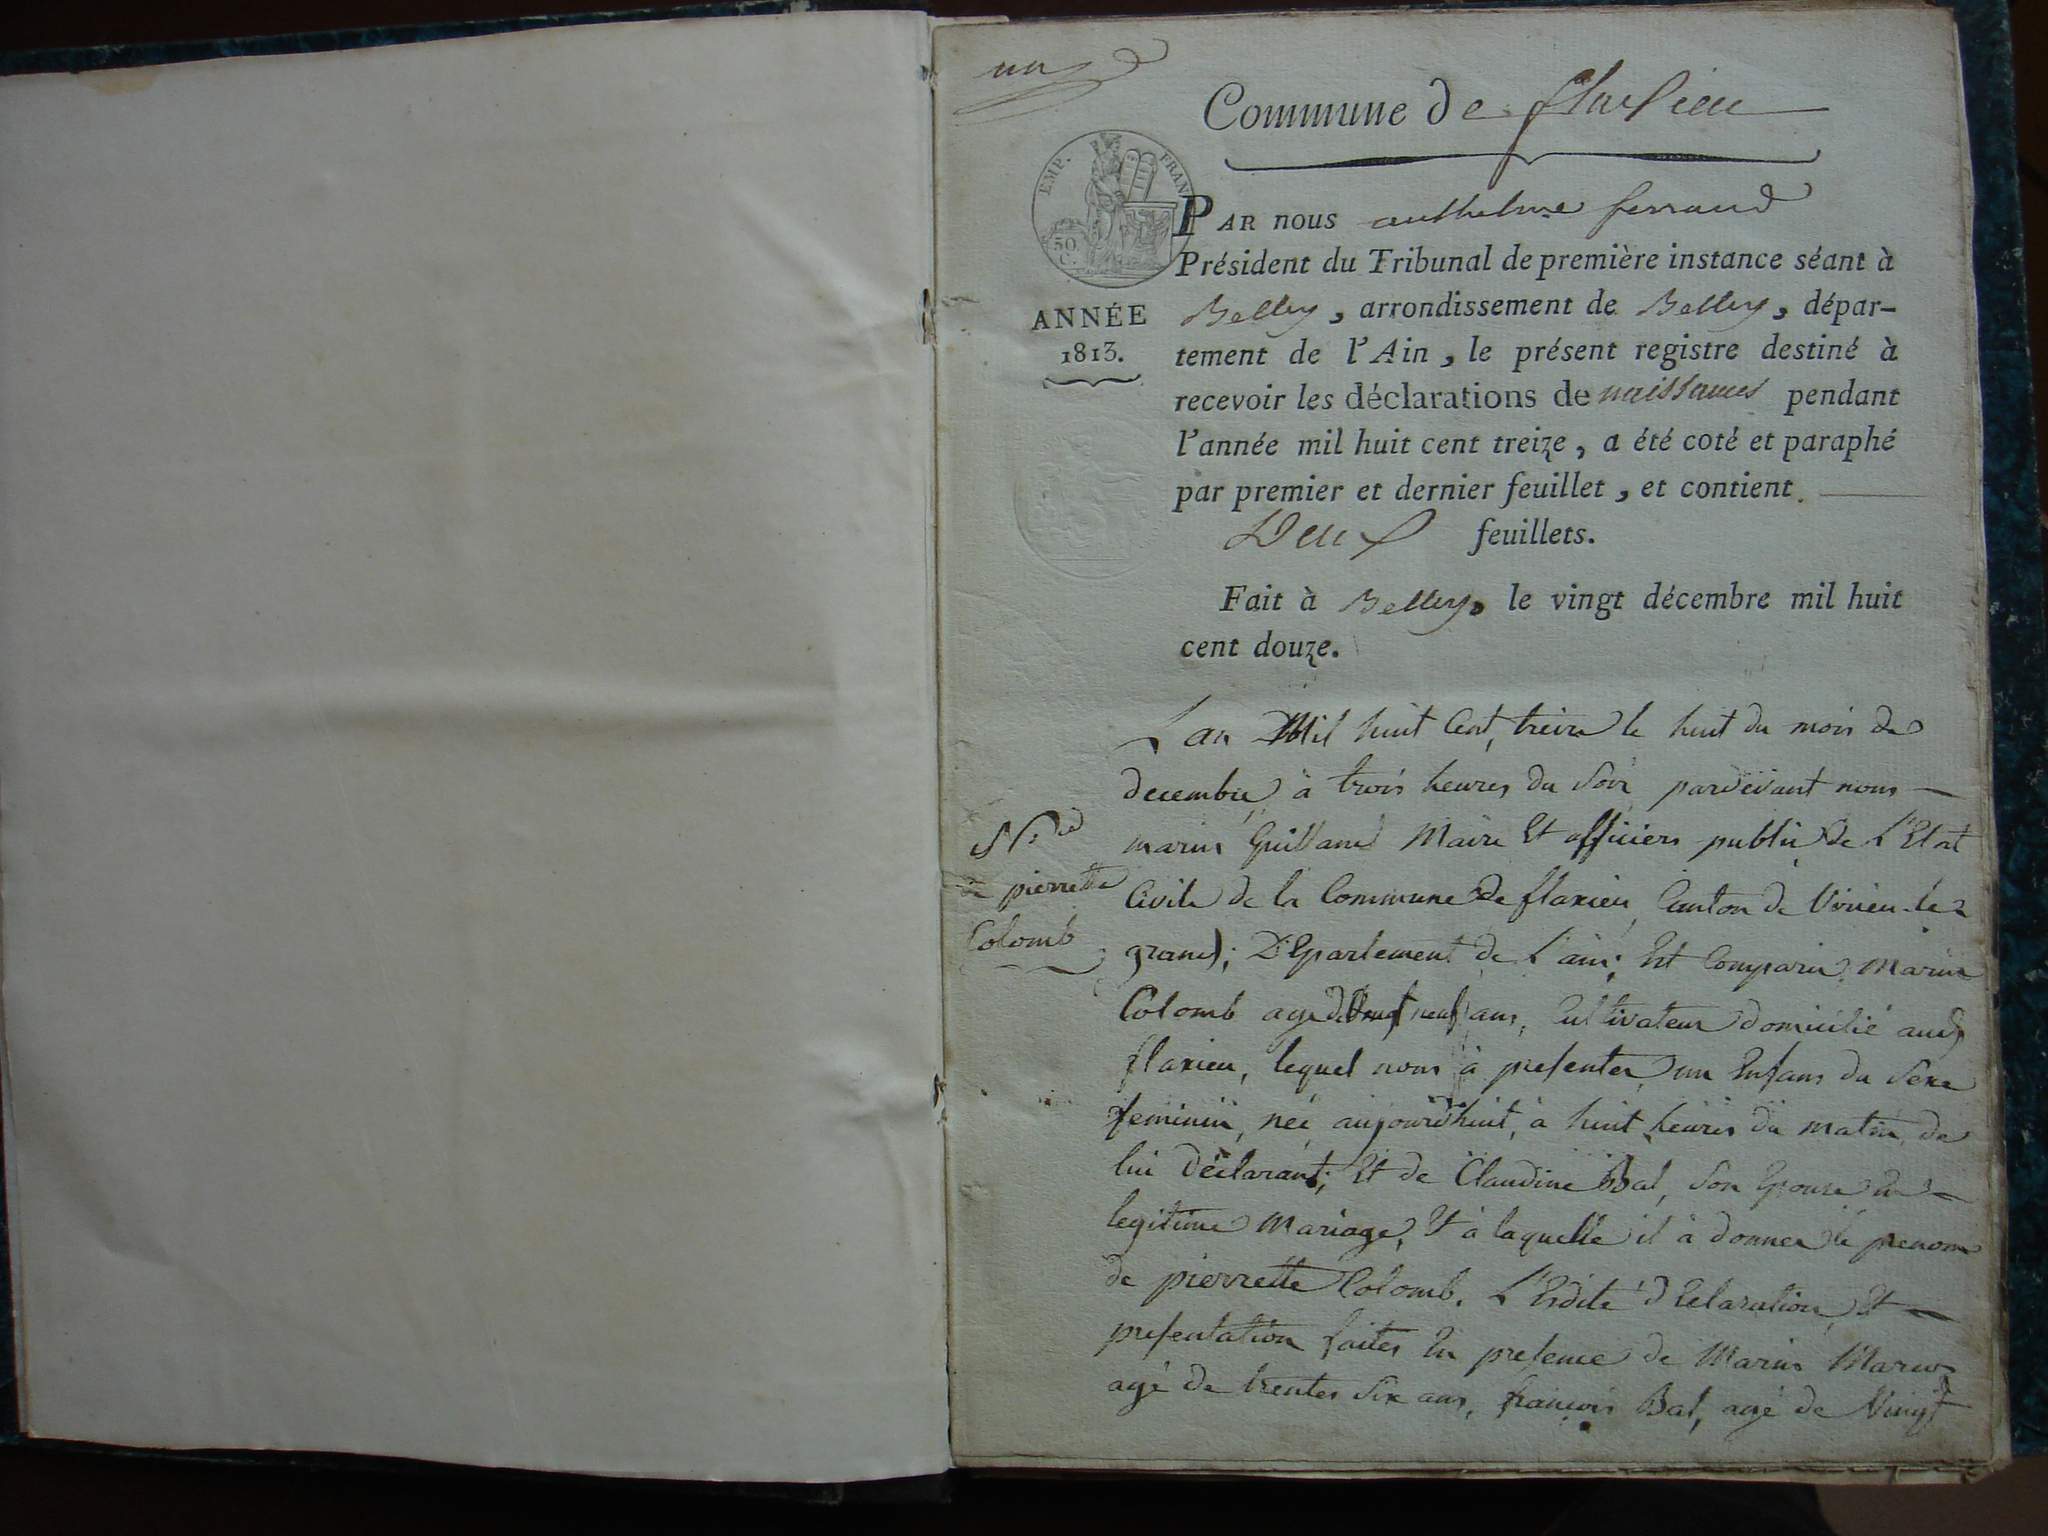 un
Commune de flaxieu
EMP. FRAN
50
C.
PAR nous anthelme ferrand
Président du Tribunal de première instance séant à
Belley, arrondissement de Belley, dépar-
ANNÉE
1813.
tement de l'Ain, le présent registre destiné à
recevoir les déclarations de naissances pendant
l'année mil huit cent treize, a été coté et paraphé
par premier et dernier feuillet, et contient
Deux feuillets.
Fait à Belley, le vingt décembre mil huit
cent douze.
Lan Mil huit Cent, treize le huit du mois de
decembre à trois heures du Soir pardevant nous
marin Guilland Maire Et officiers public de L'Etat
Civile de la Commune de flaxieu Canton de Virieu-le
grand; DEpartement de L'ain; Est Comparu Marin
N.ce
de pierrette
Colomb
Colomb agé de neuf ans, Cultivateur domicilié aud.
flaxieu, lequel nous à presenter un Enfans du Sexe
feminin, née aujourdhuit, à huit heures du matin, de
lui déclarant; Et de Claudine Bal, Son Epouse en
legitime Mariage, Et à laquelle il à donner le prenom
de pierrette Colomb. L'Esdite dEclaration Et
presentation faites En presence de Marin
agé de trentes Six ans, francois Bal, agé de Vingt